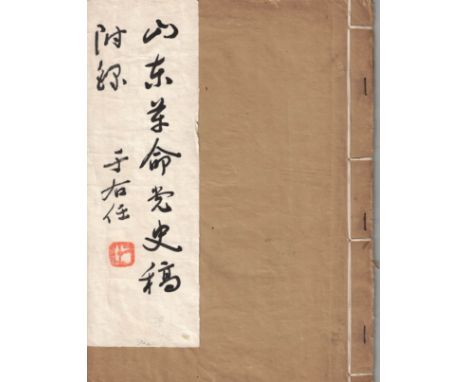 山东革命党史稿
附录
于右任